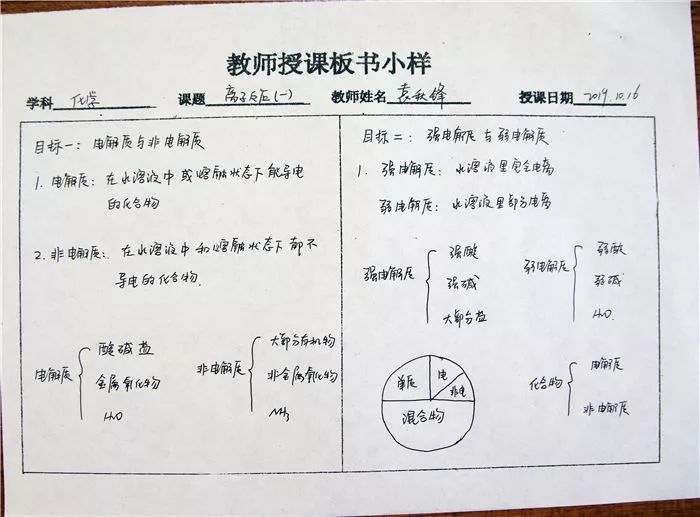 教师授课板书小样
学科 化学 课题 离子反应(一) 教师姓名 袁秋锋 授课日期 2019.10.16
目标一：电解质与非电解质
1. 电解质：在水溶液中或熔融状态下能导电
的化合物
2. 非电解质：在水溶液中和熔融状态下都不
导电的化合物.
电解质
酸碱盐
金属氧化物
H₂O
非电解质
大部分有机物
非金属氧化物
NH₃
目标二：强电解质与弱电解质
1. 强电解质：水溶液里完全电离
弱电解质：水溶液里部分电离
强电解质
强酸
强碱
大部分盐
弱电解质
弱酸
弱碱
H₂O.
单质
电
非电
混合物
化合物
电解质
非电解质